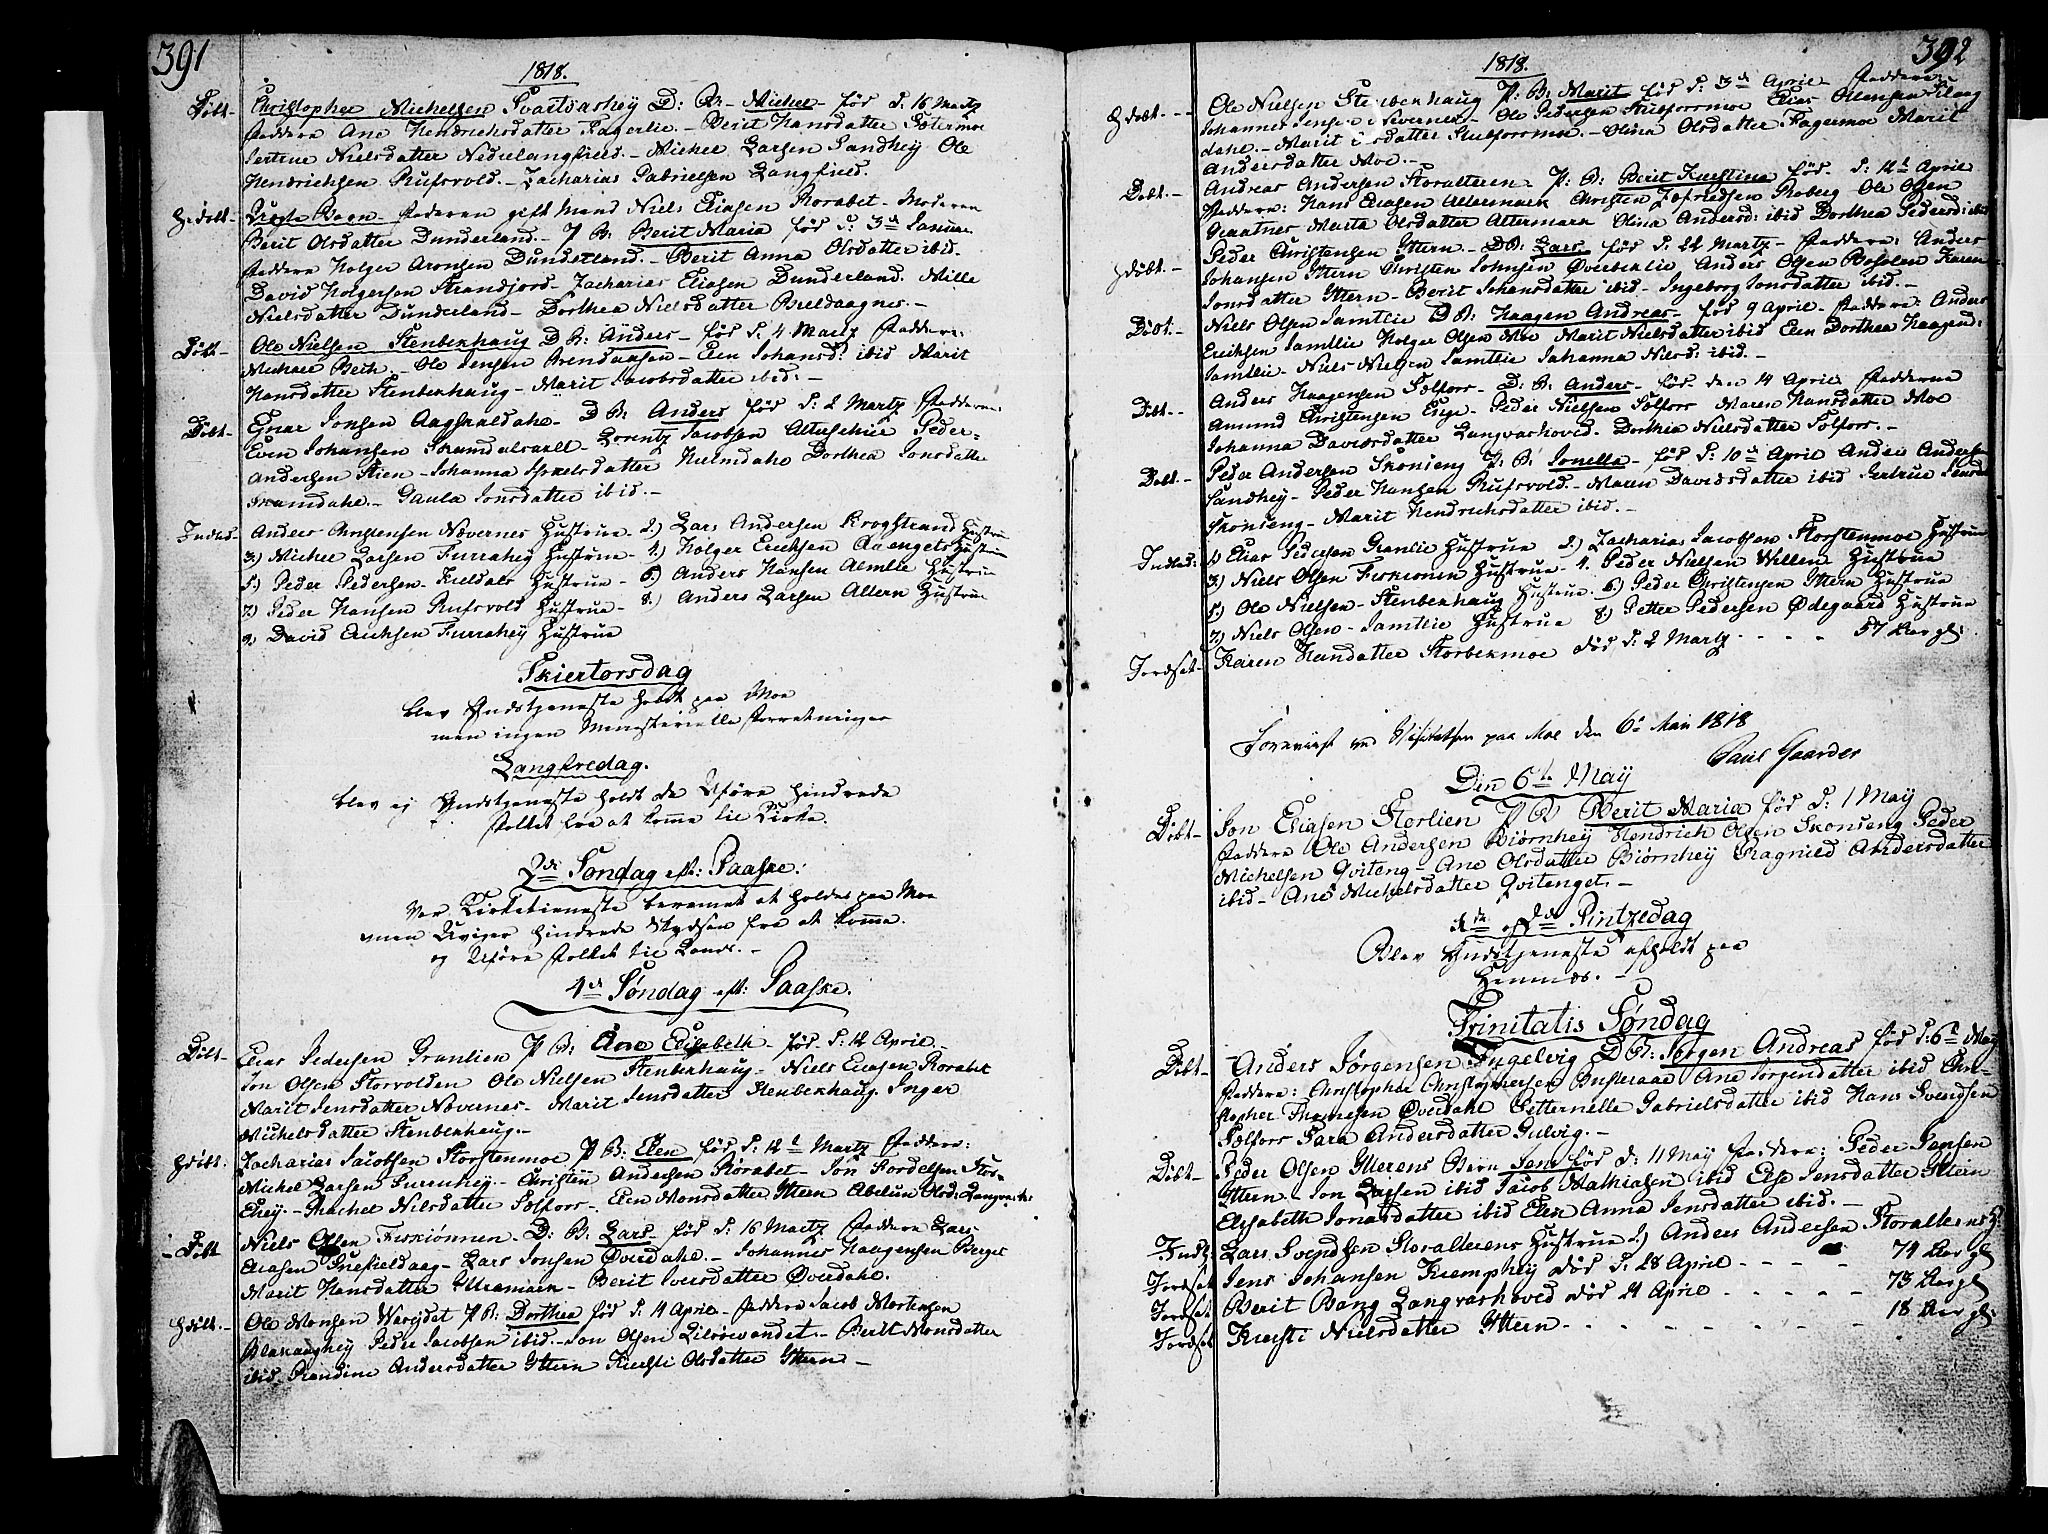 391
1818.
Döbt- Christopher Michelsen Svartvashey D: B- Michel- fød d: 16 Martz
Faddere Ane Hendrichsdatter Fagerlie- Berit Hansdatter Sætermoe
Sertine Nielsdatter Nedrelangfield.- Michel Larsen Sandhey Ole
Hendrichsen Rufsvold.- Zacharias Gabrielsen Langfield.
Hiebt- Uægte Bøgn- Faderen gift Mand Niels Eliasen Rorabet- Moderen
Berit Olsdatter Dunderland.- P B: Berit Maria fød d: 3de Januar
Faddere Holger Aronsen Dunderland.- Berit Anna Olsdatter ibid.
David Holgersen Strandjord- Zacharias Eliasen Dunderland. Mille
Nielsdatter Dunderland- Dorthea Nielsdatter Bieldaagnes.-
Döbt- Ole Nielsen Stenbekhaug D B: Anders- fød d: 4 Martz Faddere:
Michael Bech.- Ole Jensen Brendaasen- Elen Johansd: ibid Marit
Hansdatter Stenbekhaug- Marit Jacobsdatter ibid:-
Döbt- Einar Jonsen Aagskaldahe- D B: Anders fød d: 2 Martz Faddere:
Even Johansen Strandalsvalt Lorentz Jacobsen Peder
Andersen Stien- Johanna datter Dorthea Jonsdatter
- Paula Jonsdatter ibid.-
Indled- Anders Christensen Nævernes Hustrue- 2.) Lars Andersen Krogstrand Hustrue
3) Michel Larsen Furrahey Hustrue- 4.) Holger Ericksen Aaenget Hustrue
5) Peder Pedersen- Kieldahl Hustrue- 6.) Anders Hansen Almlie Hustrue
7) Peder Hansen Rufsvold Hustrue- 8.) Anders Larsen Altern Hustrue
9) David Erichsen Furrahey Hustrue
Skiertorsdag
blev Gudstjeneste holdt paa Moe
men ingen Ministerielle Forretninger
Langfredag.
blev ej Gudstjeneste holdt da Uføre hindrede
Folket fra at komme til Kirke.
2de Søndag eft: Paaske:
Var Kirketieneste berammet at holdes paa Moe
men Uveyer hindrede Skydsen fra at komme.
og Uføre Folket til Lands.-
4de Søndag eft: Paaske.
Döbt- Elias Pedersen Granlien P B: Ane Elisabeth- fød d: 12 April-
Jon Olsen Storvolden Ole Nielsen Stenbekhaug- Niels Eliasen Rorabet
Marit Jensdatter Nævernes- Marit Jensdatter Stenbekhaug. Inger
Michelsdatter Stenbekhaug.-
Hdöbt. Zacharias Jacobsen Storstenmoe P B: Elen fød d: 12t Martz Faddere:
Michel Larsen Furrahey.- Christen Andersen Rorabet- Jon Stor-
Ehey- Rachel Nilsdatter Sølfors- Elen Monsdatter Yttern Abelun Olsd: Langvashov:
Döbt Niels Olsen Fiskiønnen- D: B: Lars- fød d: 16 Martz Faddere Lars
Eliasen - Lars Jonsen Øverdahl- Johannes Haagensen Berget
Marit Hansdatter - Berit Iversdatter Øverdahl.
Hdöbt.- Ole Monsen P B: Dorthea fød d: 4 April- Faddere Jacob Mortensen
Plakaashey Peder Jacobsen ibid- Jon Olsen - Berit Monsdatter
ibid- Randine Andersdatter Yttern Kiersti Olsdatter Yttern-
392
1818.
Hdöbt.-- Ole Nielsen Stenbekhaug P: B: Marit fød d: 3de April- Faddere:
Johannes Jensen Nævernes- Ole Pedersen Stilforsmoe Elias
dahl.- Marit datter Stilforsmoe- Olina Olsdatter Fagermoe Marit
Andersdatter Moe.-
Döbt.- Andreas Andersen Storalteren. P: B: Berit Kirstina fød. d: 12t April
Faddere: Hans Eliasen Altermark Christen Zofriedsen Roberg Ole Olsen
Graatnes Marta Olsdatter Altermark Olina Andersd: ibid Dorthea Pedersd: ibid
Hdöbt.- Peder Christensen Yttern.- D B: Lars- fød d: 22 Martz- Faddere: Anders
Johansen Yttern Christen Johnsen Øverbeklie Anders Olsen Karen
Jonsdatter Yttern- Berit Johansdatter ibid- Ingeborg Jonsdatter ibid.-
Döbt.- Niels Olsen Jamtlie D B: Haagen Andreas- fød 9 April.- Faddere: Anders
Erichsen Jamtlie Holger Olsen Moe Marit Nielsdatter ibid Elen Dorthea Haagend:
Jamtlie- Niels Nielsen Jamtlie Johanna Nilsd: ibid.-
Döbt.- Anders Haagensen Sølfors- D: B: Anders- fød. den 14 April Fadderne
Amund Christensen Enge- Peder Nielsen Sølfors Maren Hansdatter Moe
Johanna Davidsdatter Langvashoved- Dorthea Nielsdatter Sølfors.-
Döbt.- Peder Andersen Skonseng P: B: Jonella- fød d: 10de April Anders Andersen
Sandhey- Peder Hansen Rufsvold.- Maren Davidsdatter ibid Gertrue
Skonseng- Marit Hendrichsdatter ibid.-
Indled: 1.) Elias Pedersen Granlie Hustrue 2.) Zacharias Jacobsen Storstenmoe Hustrue
3) Niels Olsen Fiskionen Hustrue- 4. Peder Nielsen Hustrue
5) Ole Nielsen- Stenbekhaug Hustrue. 6.) Peder Christensen Yttern Hustrue
7) Niels Olsen- Jamtlie Hustrue 8.) Petter Pedersen Ødegaard Hustrue
Jordfæt- Karen Hansdatter Storbekmoe død d: 2 Martz.- - - - 57 Aar gl:
Foreviist ved Visitatsen paa Moe den 6te Mai 1818
Paul Gaarder
Den 6te May
Döbt- Jon Eliasen Storlien P B Berit Maria fød d: 1 May
Faddere Ole Andersen Biørnhey Hendrich Olsen Skonseng Peder
Michelsen Qviteng- Ane Olsdatter Biørnhey Ragnild Andersdatter
ibid- Ane Michelsdatter Qvitenget.-
1ste og 2de Pintzedag
Blev Gudstjeneste afholdt paa
Hemnæs.-
Trinitatis Søndag
Döbt- Anders Jørgensen Fugelvig D B: Jørgen Andreas fød d: 6te May
Faddere: Christopher Christophersen Ane Jørgensdatter ibid Chri-
stopher Thomesen Øverdahl Petternelle Gabrielsdatter ibid Hans Svendsen
Sølfors Sara Andersdatter Gulvig.-
Döbt- Peder Olsen Ytterens Børn Jens fød d: 11 May Faddere: Peder Hansen
Yttern.- Jon Larsen ibid Jacob Mathiasen ibid Else Jensdatter Yttern
Elisabeth Jonasdatter ibid Elen Anna Jensdatter ibid.-
Indl: Lars Svendsen Storalterens Hustrue 2.) Anders Andersen Storalterens H:
Jordfæt Jens Johansen Kiemphey død d: 28 April - - - - 74 Aar gl
Jordfæt Berit Bang Langvashoved død 21 April - - - - 73 Aar gl
Jordfæt Kiersti Nielsdatter Yttern- - - - - - - 18 Aar gl: